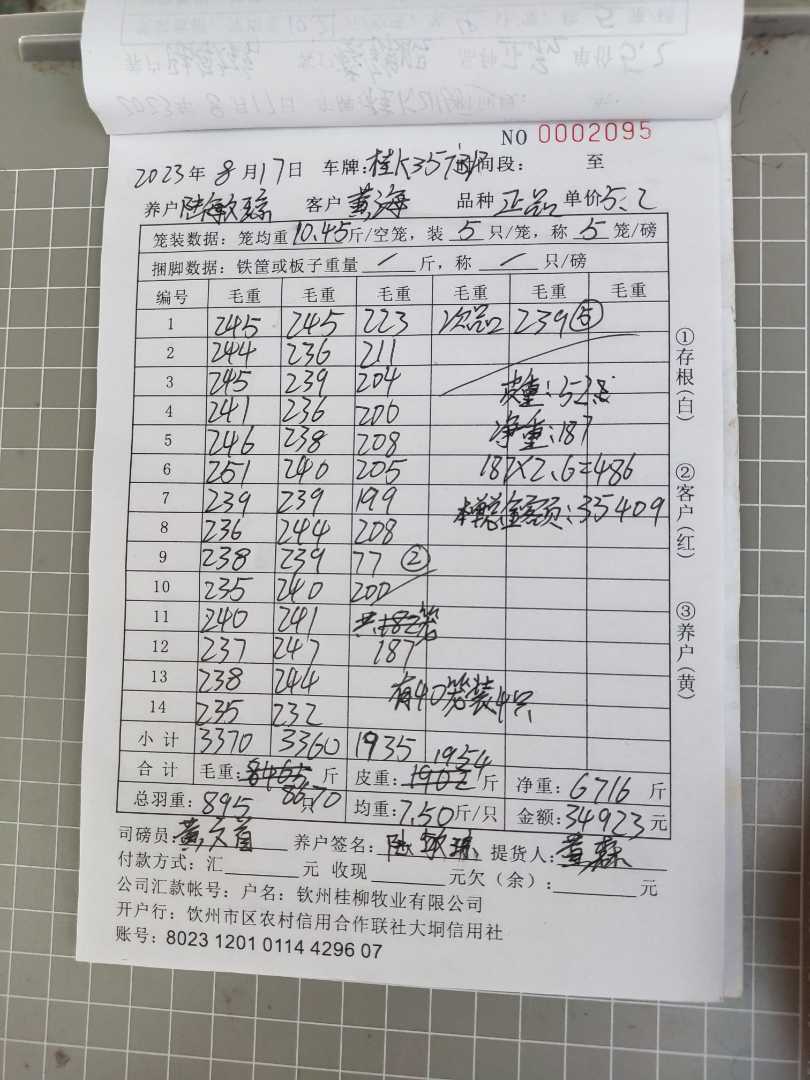 NO 0002095
2023年 8月17日 车牌:桂K35 时间段: 至
养户 陆敏琼 客户 黄海 品种 正品 单价5.2
笼装数据:笼均重10.45斤/空笼,装 5 只/笼,称 5 笼/磅
捆脚数据:铁筐或板子重量 / 斤,称 / 只/磅
编号 毛重 毛重 毛重 毛重 毛重 毛重
1 245 245 223 次品 239⑤
2 244 236 211
3 245 239 204 皮重:52.8
4 241 236 206 净重:187
5 246 238 208
6 251 240 205 187×2.6=486
7 239 239 199 总金额:35409
8 236 244 208
9 238 239 77 ②
10 235 240 200
11 240 241 共182笼
12 237 247 187
13 238 244 有40笼装4只
14 235 232
小计 3370 3360 1935 1954
合计 毛重:8465 8670斤 皮重:1902 斤 净重:6716 斤
总羽重:895 只 均重:7.50斤/只 金额:34923元
司磅员:黄文首 养户签名:陆敏琼 提货人:黄森
付款方式:汇 元 收现 元欠(余): 元
公司汇款帐号:户名:钦州桂柳牧业有限公司
开户行:钦州市区农村信用合作联社大垌信用社
账号:8023 1201 0114 4296 07
①存根(白)
②客户(红)
③养户(黄)